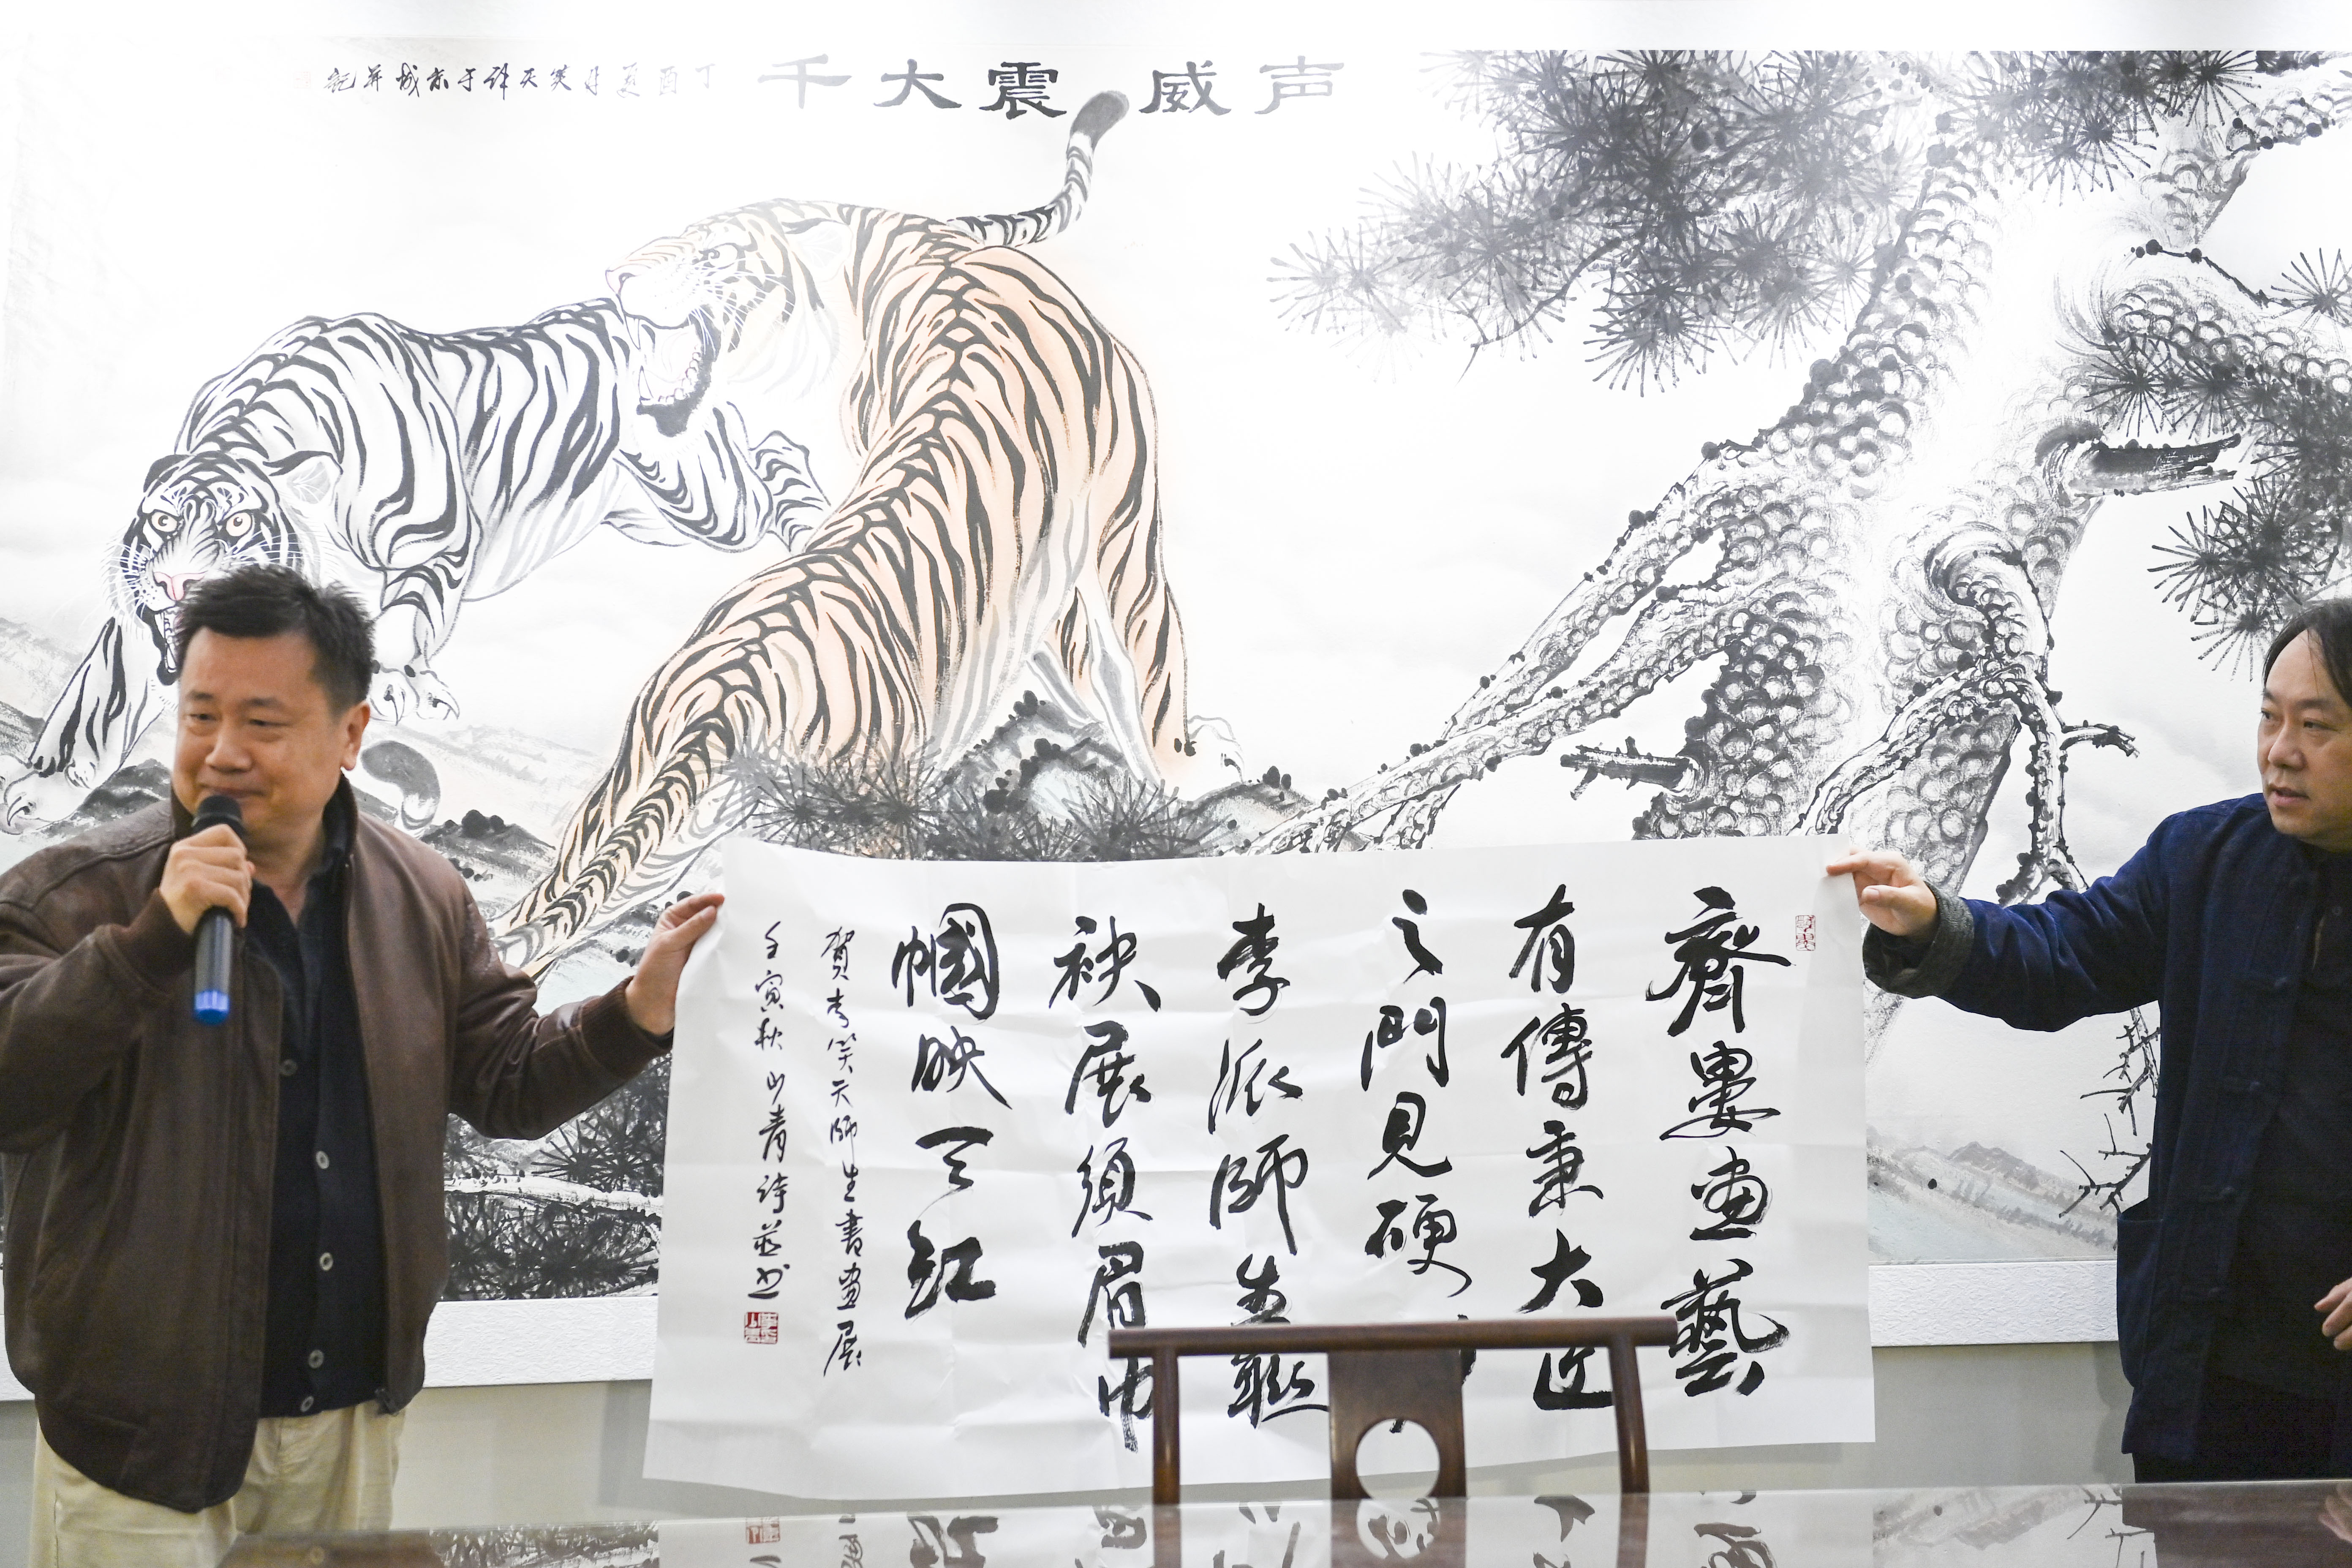 声威震大千
丁酉夏月笑天作于京城并記
齊婁畫藝
有傳承大匠
之門見硬
李派師生聯
袂展須眉巾
幗映天紅
賀李笑天師生書畫展
壬寅秋山青詩並书